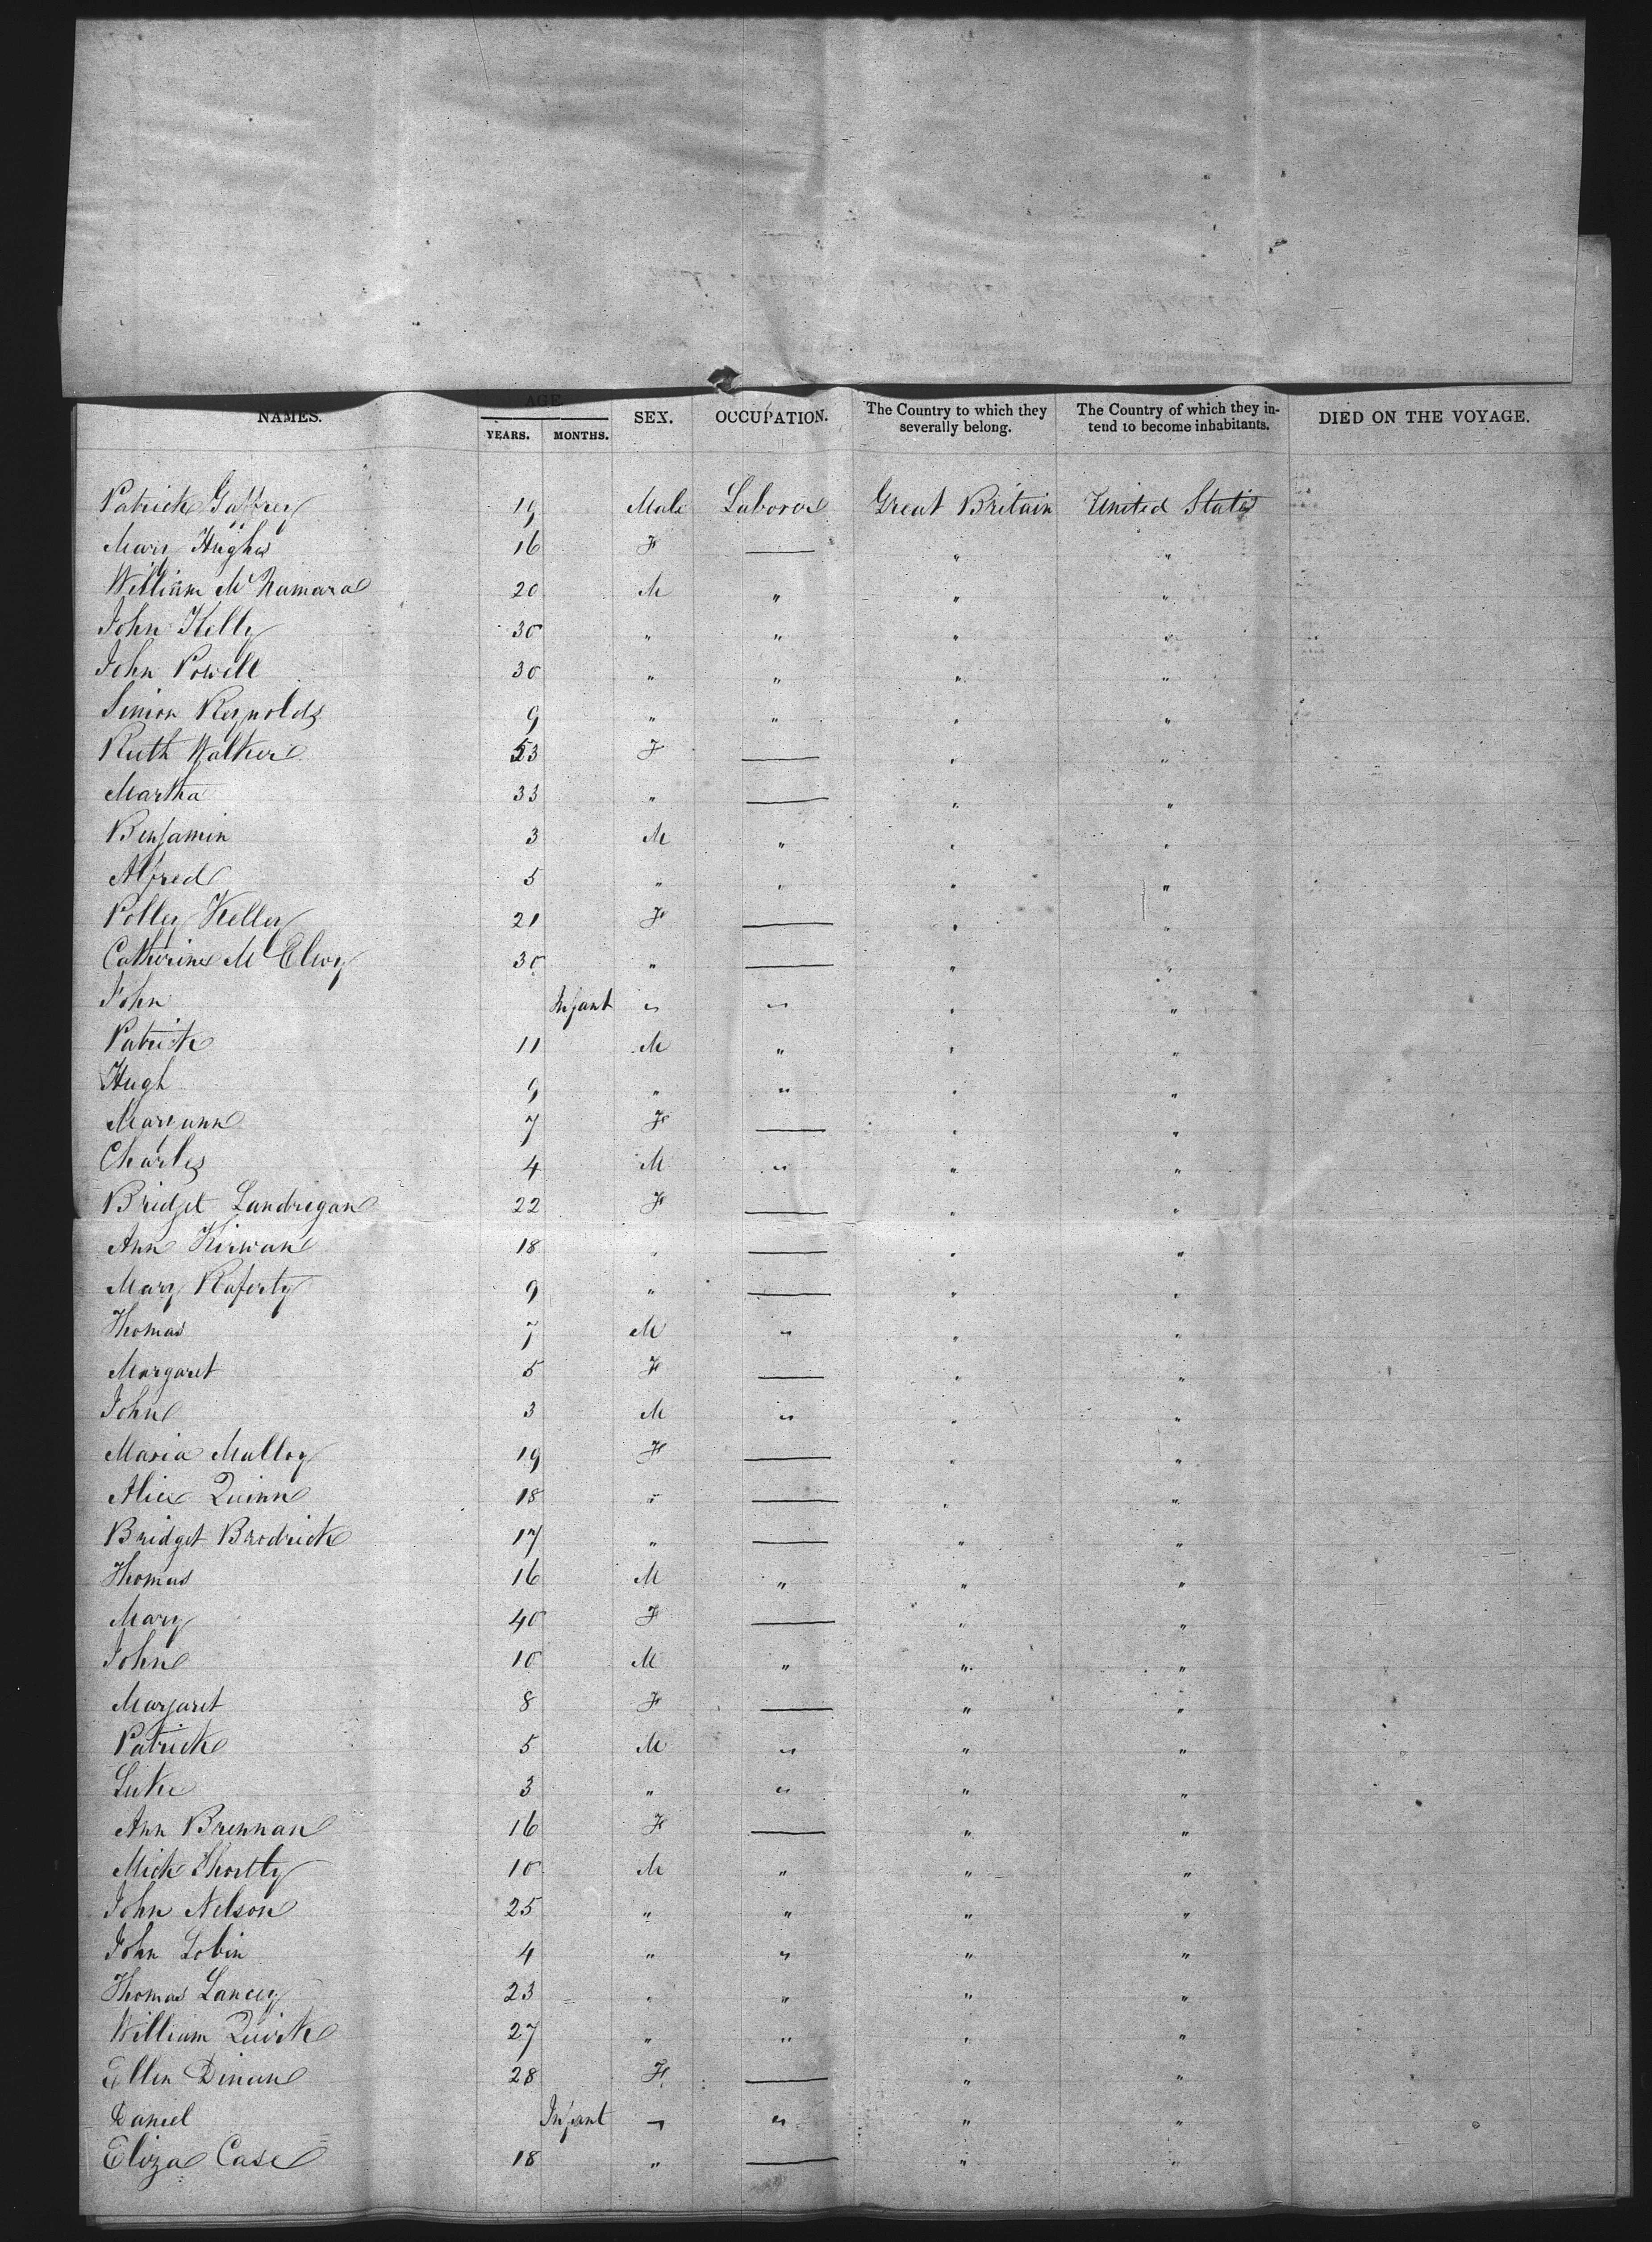 NAMES. AGE. SEX. OCCUPATION. The Country to which they severally belong. The Country of which they intend to become inhabitants. DIED ON THE VOYAGE.
YEARS. MONTHS.
Patrick Gaffrey 19 Male Laborer Great Britain United States
Mary Hughes 16 F — " "
William McNamara 20 M " " "
John Kelly 30 " " " "
John Powell 30 " " " "
Simon Reynolds 9 " " " "
Ruth Walker 53 F — " "
Martha 33 " — " "
Benjamin 3 M " " "
Alfred 5 " " " "
Polley Kelley 21 F — " "
Catherine McElwy 30 " — " "
John Infant " " " "
Patrick 11 M " " "
Hugh 9 " " " "
Maryann 7 F — " "
Charles 4 M " " "
Bridget Landrigan 22 F — " "
Ann Kirwan 18 " — " "
Mary Raferty 9 " — " "
Thomas 7 M " " "
Margaret 5 F — " "
John 3 M " " "
Maria Malloy 19 F — " "
Alice Quinn 18 " — " "
Bridget Brodrick 17 " — " "
Thomas 16 M " " "
Mary 40 F — " "
John 10 M " " "
Margaret 8 F — " "
Patrick 5 M " " "
Luke 3 " " " "
Ann Brennan 16 F — " "
Mick 10 M " " "
John Nelson 25 " " " "
John Lobin 4 " " " "
Thomas Lancey 23 " " " "
William Quirk 27 " " " "
Ellen Dinan 28 F — " "
Daniel Infant " " " "
Eliza Case 18 " — " "